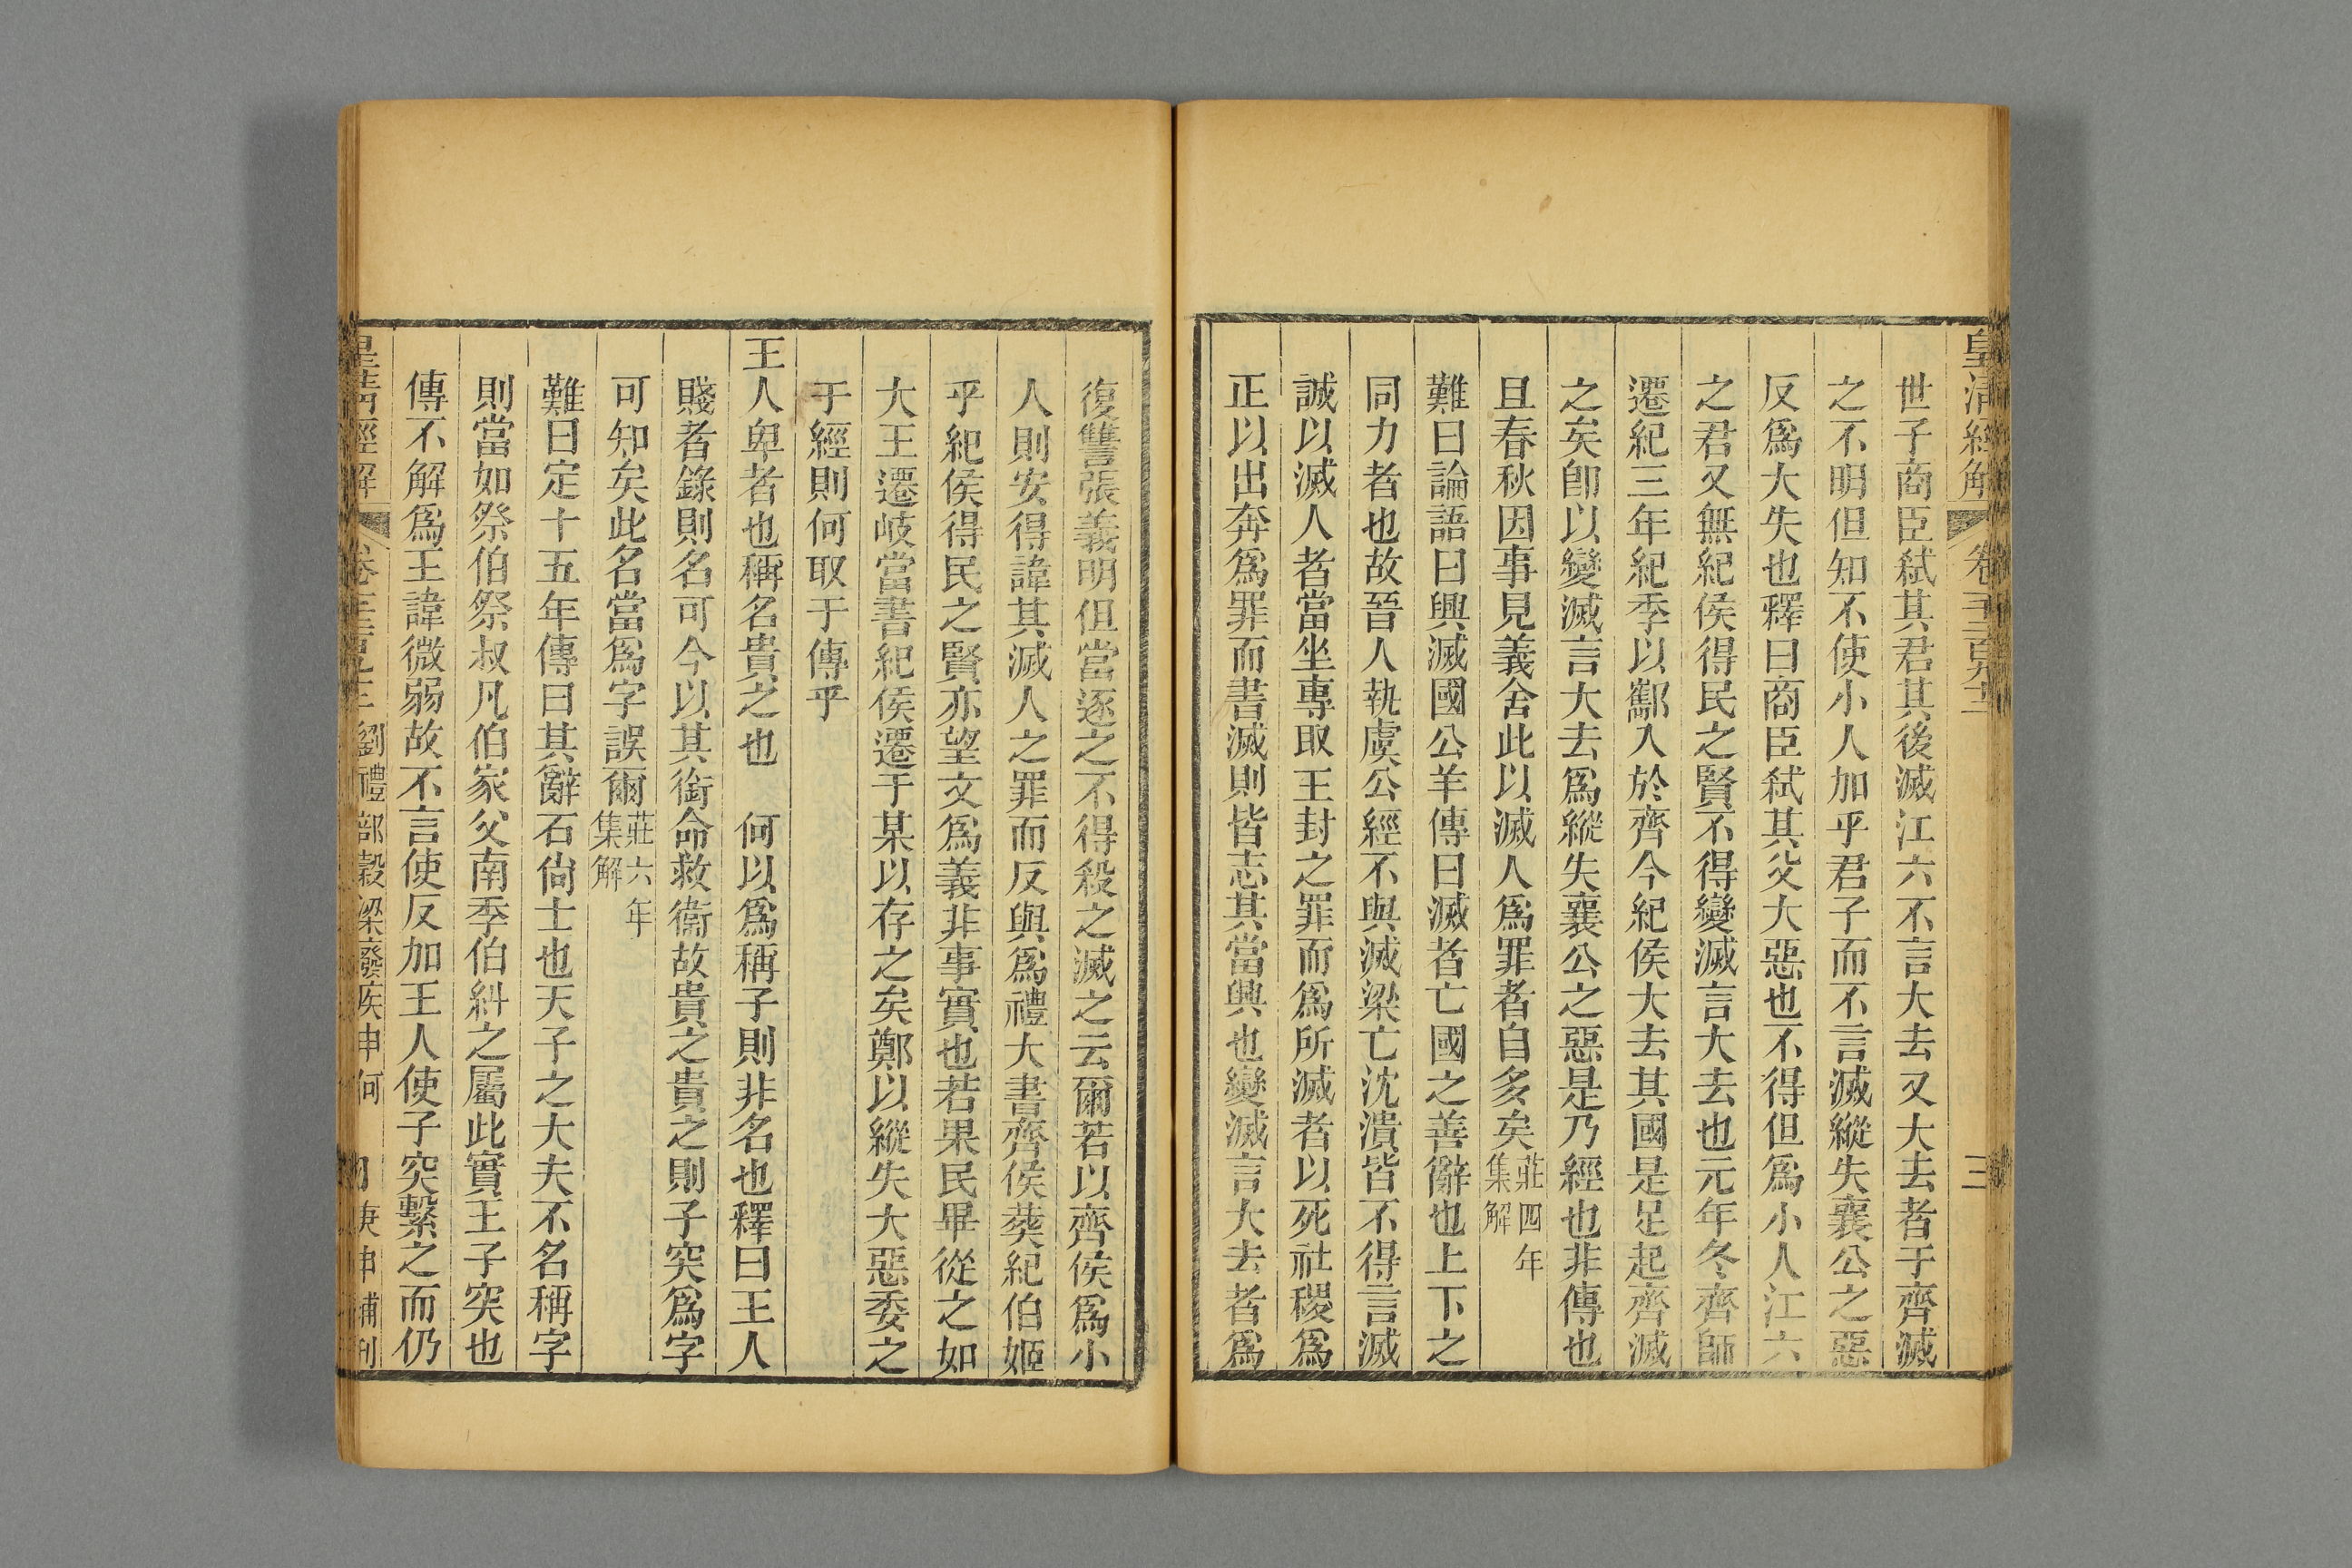 皇清經解 卷千二百九十二 三
世子商臣弑其君其後滅江六不言大去又大去者于齊滅
之不明但知不使小人加乎君子而不言滅縱失襄公之惡
反爲大失也釋曰商臣弑其父大惡也不得但爲小人江六
之君又無紀侯得民之賢不得變滅言大去也元年冬齊師
遷紀三年紀季以酅入於齊今紀侯大去其國是足起齊滅
之矣卽以變滅言大去爲縱失襄公之惡是乃經也非傳也
且春秋因事見義舍此以滅人爲罪者自多矣莊四年集解
難曰論語曰興滅國公羊傳曰滅者亡國之善辭也上下之
同力者也故晉人執虞公經不與滅梁亡沈潰皆不得言滅
誠以滅人者當坐專取王封之罪而爲所滅者以死社稷爲
正以出奔爲罪而書滅則皆志其當興也變滅言大去者爲
復讐張義明但當逐之不得殺之滅之云爾若以齊侯爲小
人則安得諱其滅人之罪而反與爲禮大書齊侯葬紀伯姬
乎紀侯得民之賢亦望文爲義非事實也若果民畢從之如
大王遷岐當書紀侯遷于某以存之矣鄭以縱失大惡委之
于經則何取于傳乎
王人卑者也稱名貴之也 何以爲稱子則非名也釋曰王人
賤者錄則名可今以其銜命救衞故貴之貴之則子突爲字
可知矣此名當爲字誤爾莊六年集解
難曰定十五年傳曰其辭石尙士也天子之大夫不名稱字
則當如祭伯祭叔凡伯家父南季伯糾之屬此實王子突也
傳不解爲王諱微弱故不言使反加王人使子突繫之而仍
皇清經解 劉禮部穀梁廢疾申何 庚申補刊